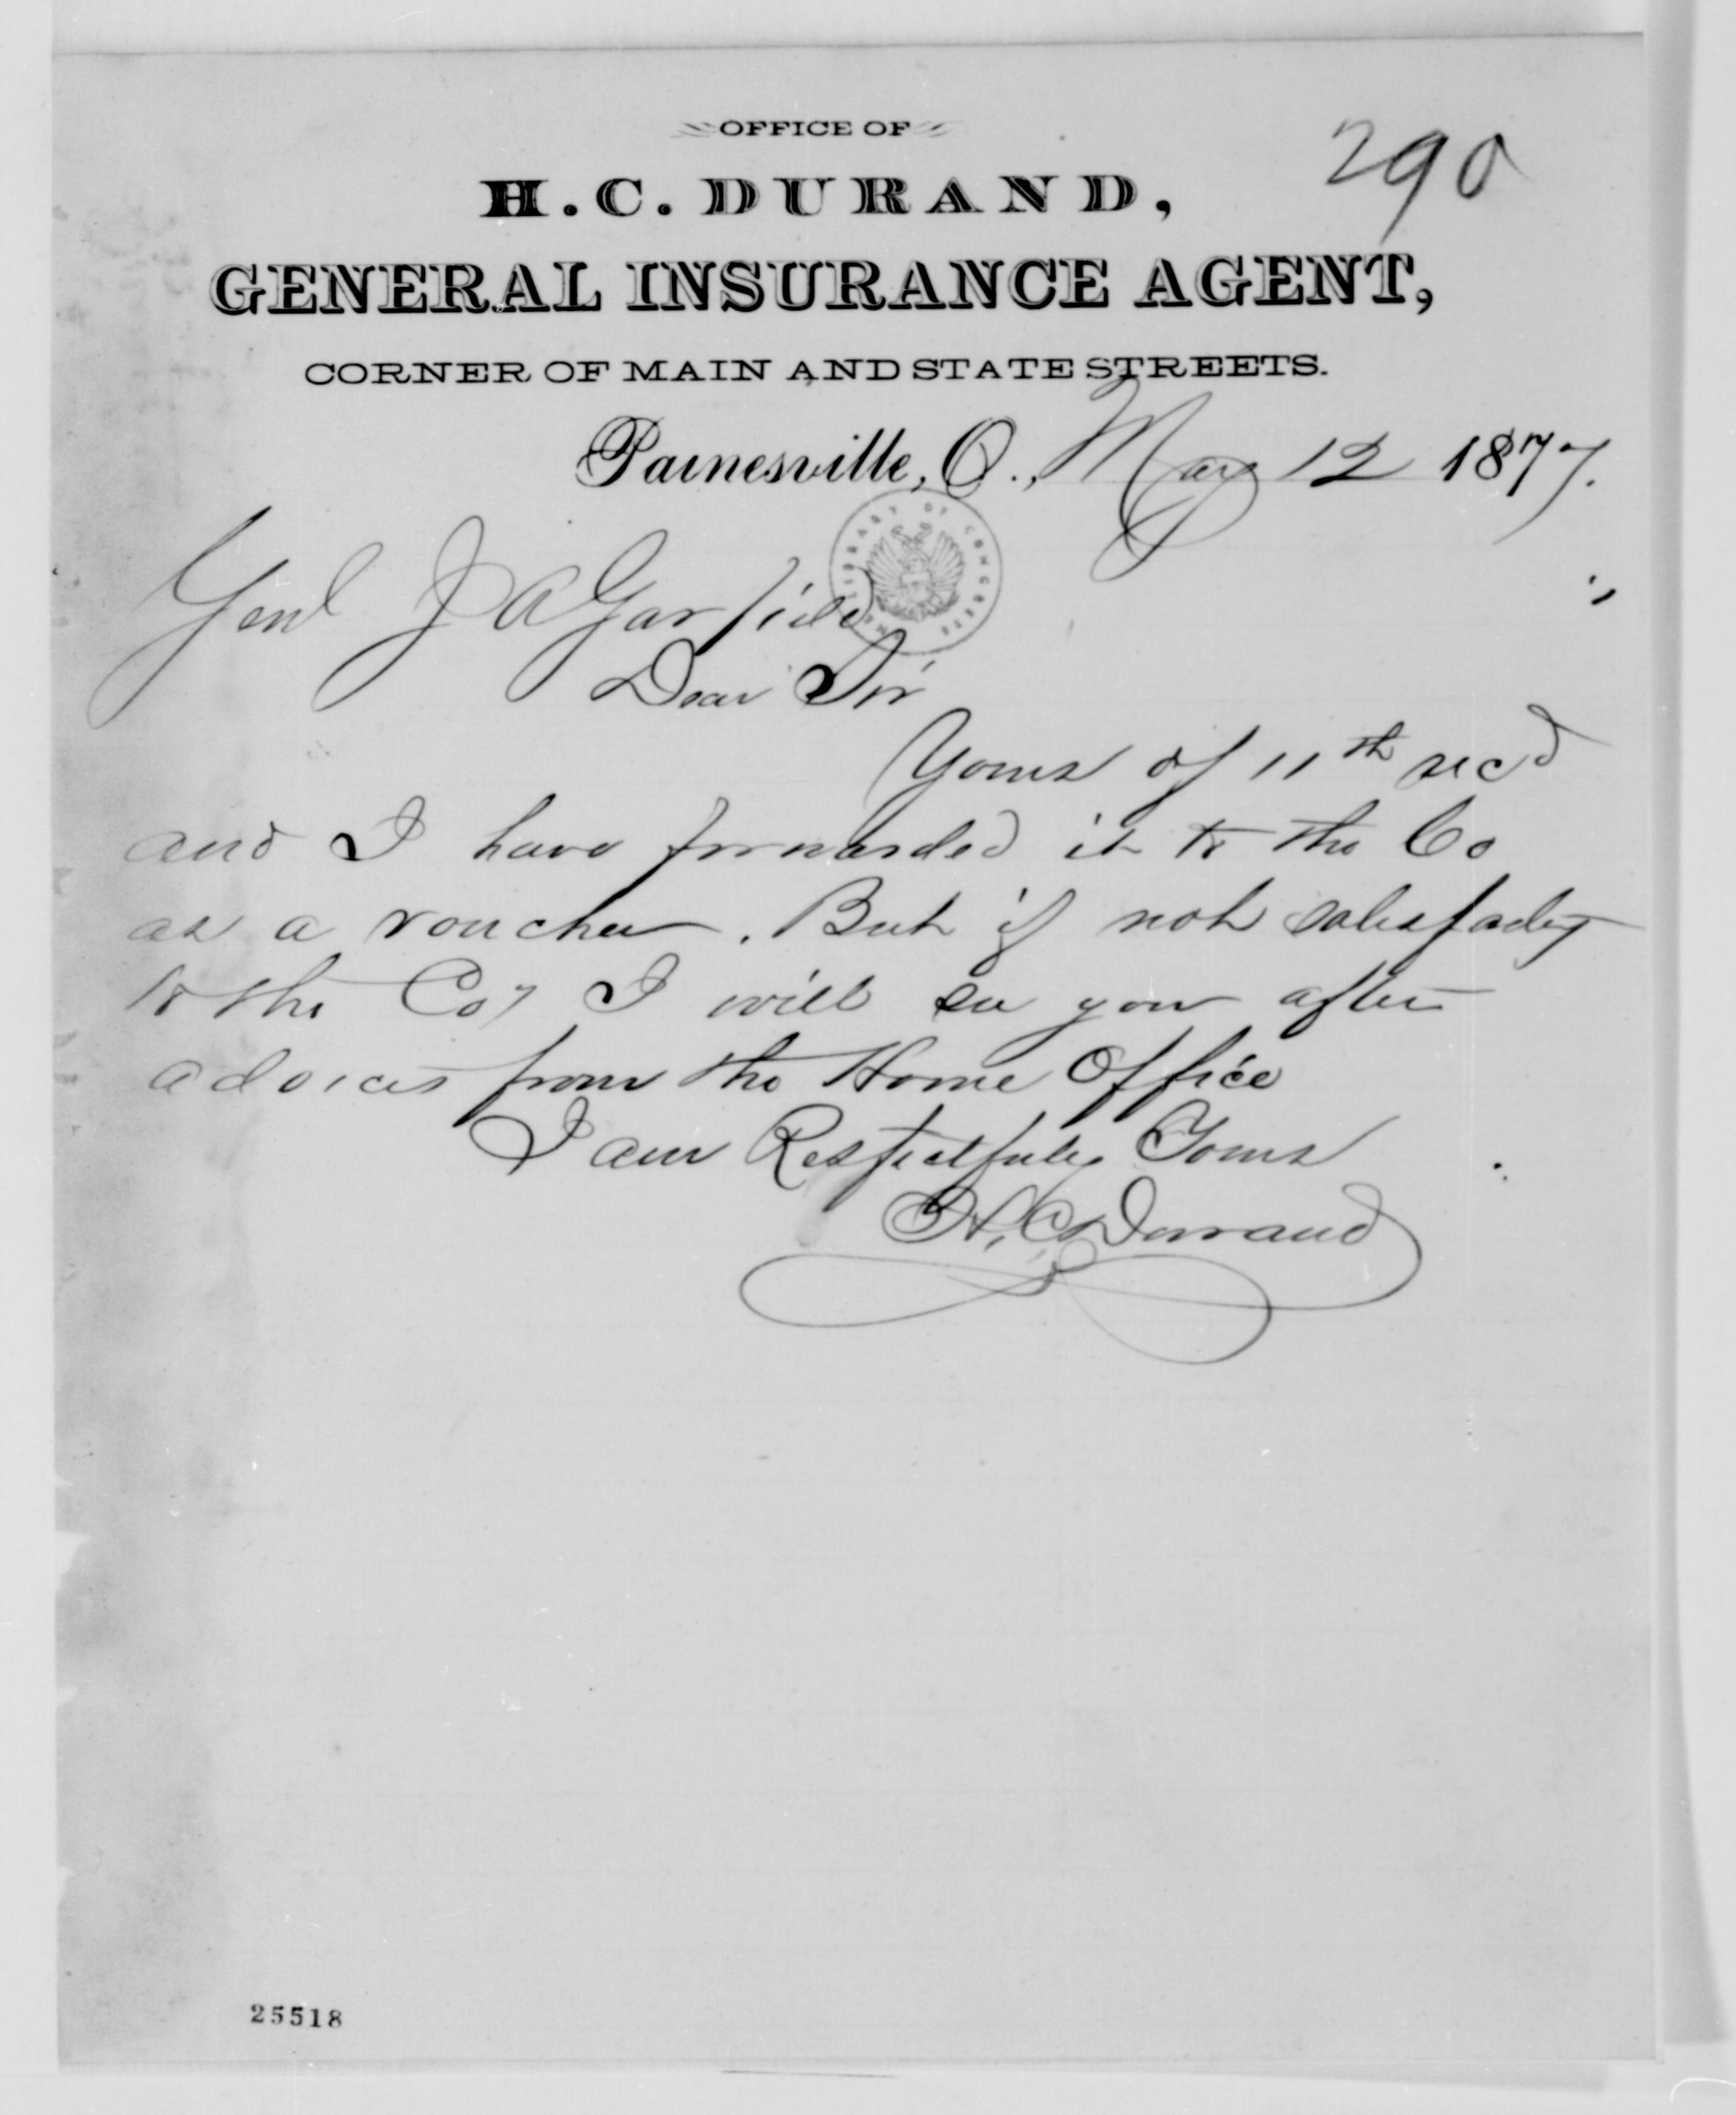 290
OFFICE OF
H. C. DURAND,
GENERAL INSURANCE AGENT,
CORNER OF MAIN AND STATE STREETS.
Painesville, O., May 12 1877.
Genl J A Garfield
LIBRARY OF CONGRESS
Dear Sir
Yours of 11th recd
and I have forwarded it to the Co
as a voucher. But if not satisfactory
to the Coy I will see you after
advices from the Home Office
I am Respectfully Yours
H. C. Durand
25518